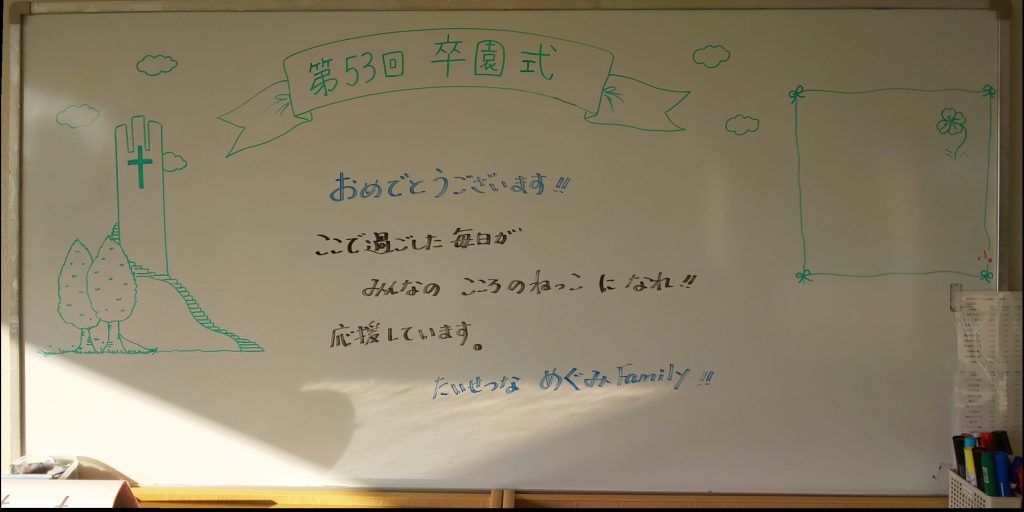 第53回 卒園式
おめでとうございます!!
ここで過ごした毎日が
みんなの こころのねっこ に なれ!!
応援しています。
たいせつな めぐみFamily!!!